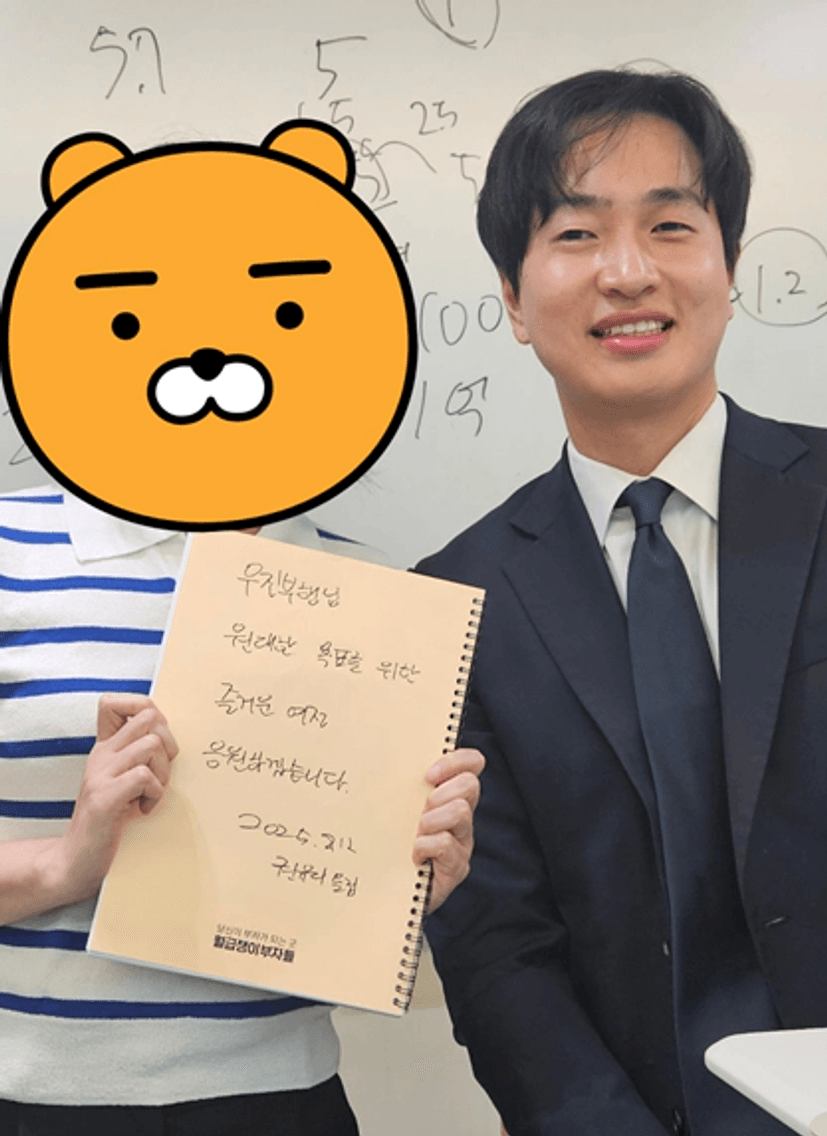 5.7
5
2.5
5
100
1억
1.2
우진부행님
원대한 목표를 위한
즐거운 여정
응원하겠습니다.
2025. 8.12
권유디 드림
당신이 부자가 되는 곳
월급쟁이부자들